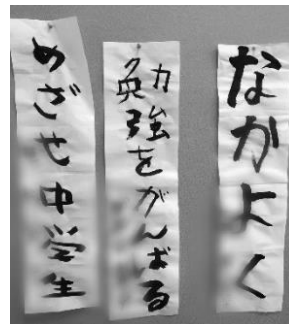 なかよく
勉強をがんばる
めざせ中学生